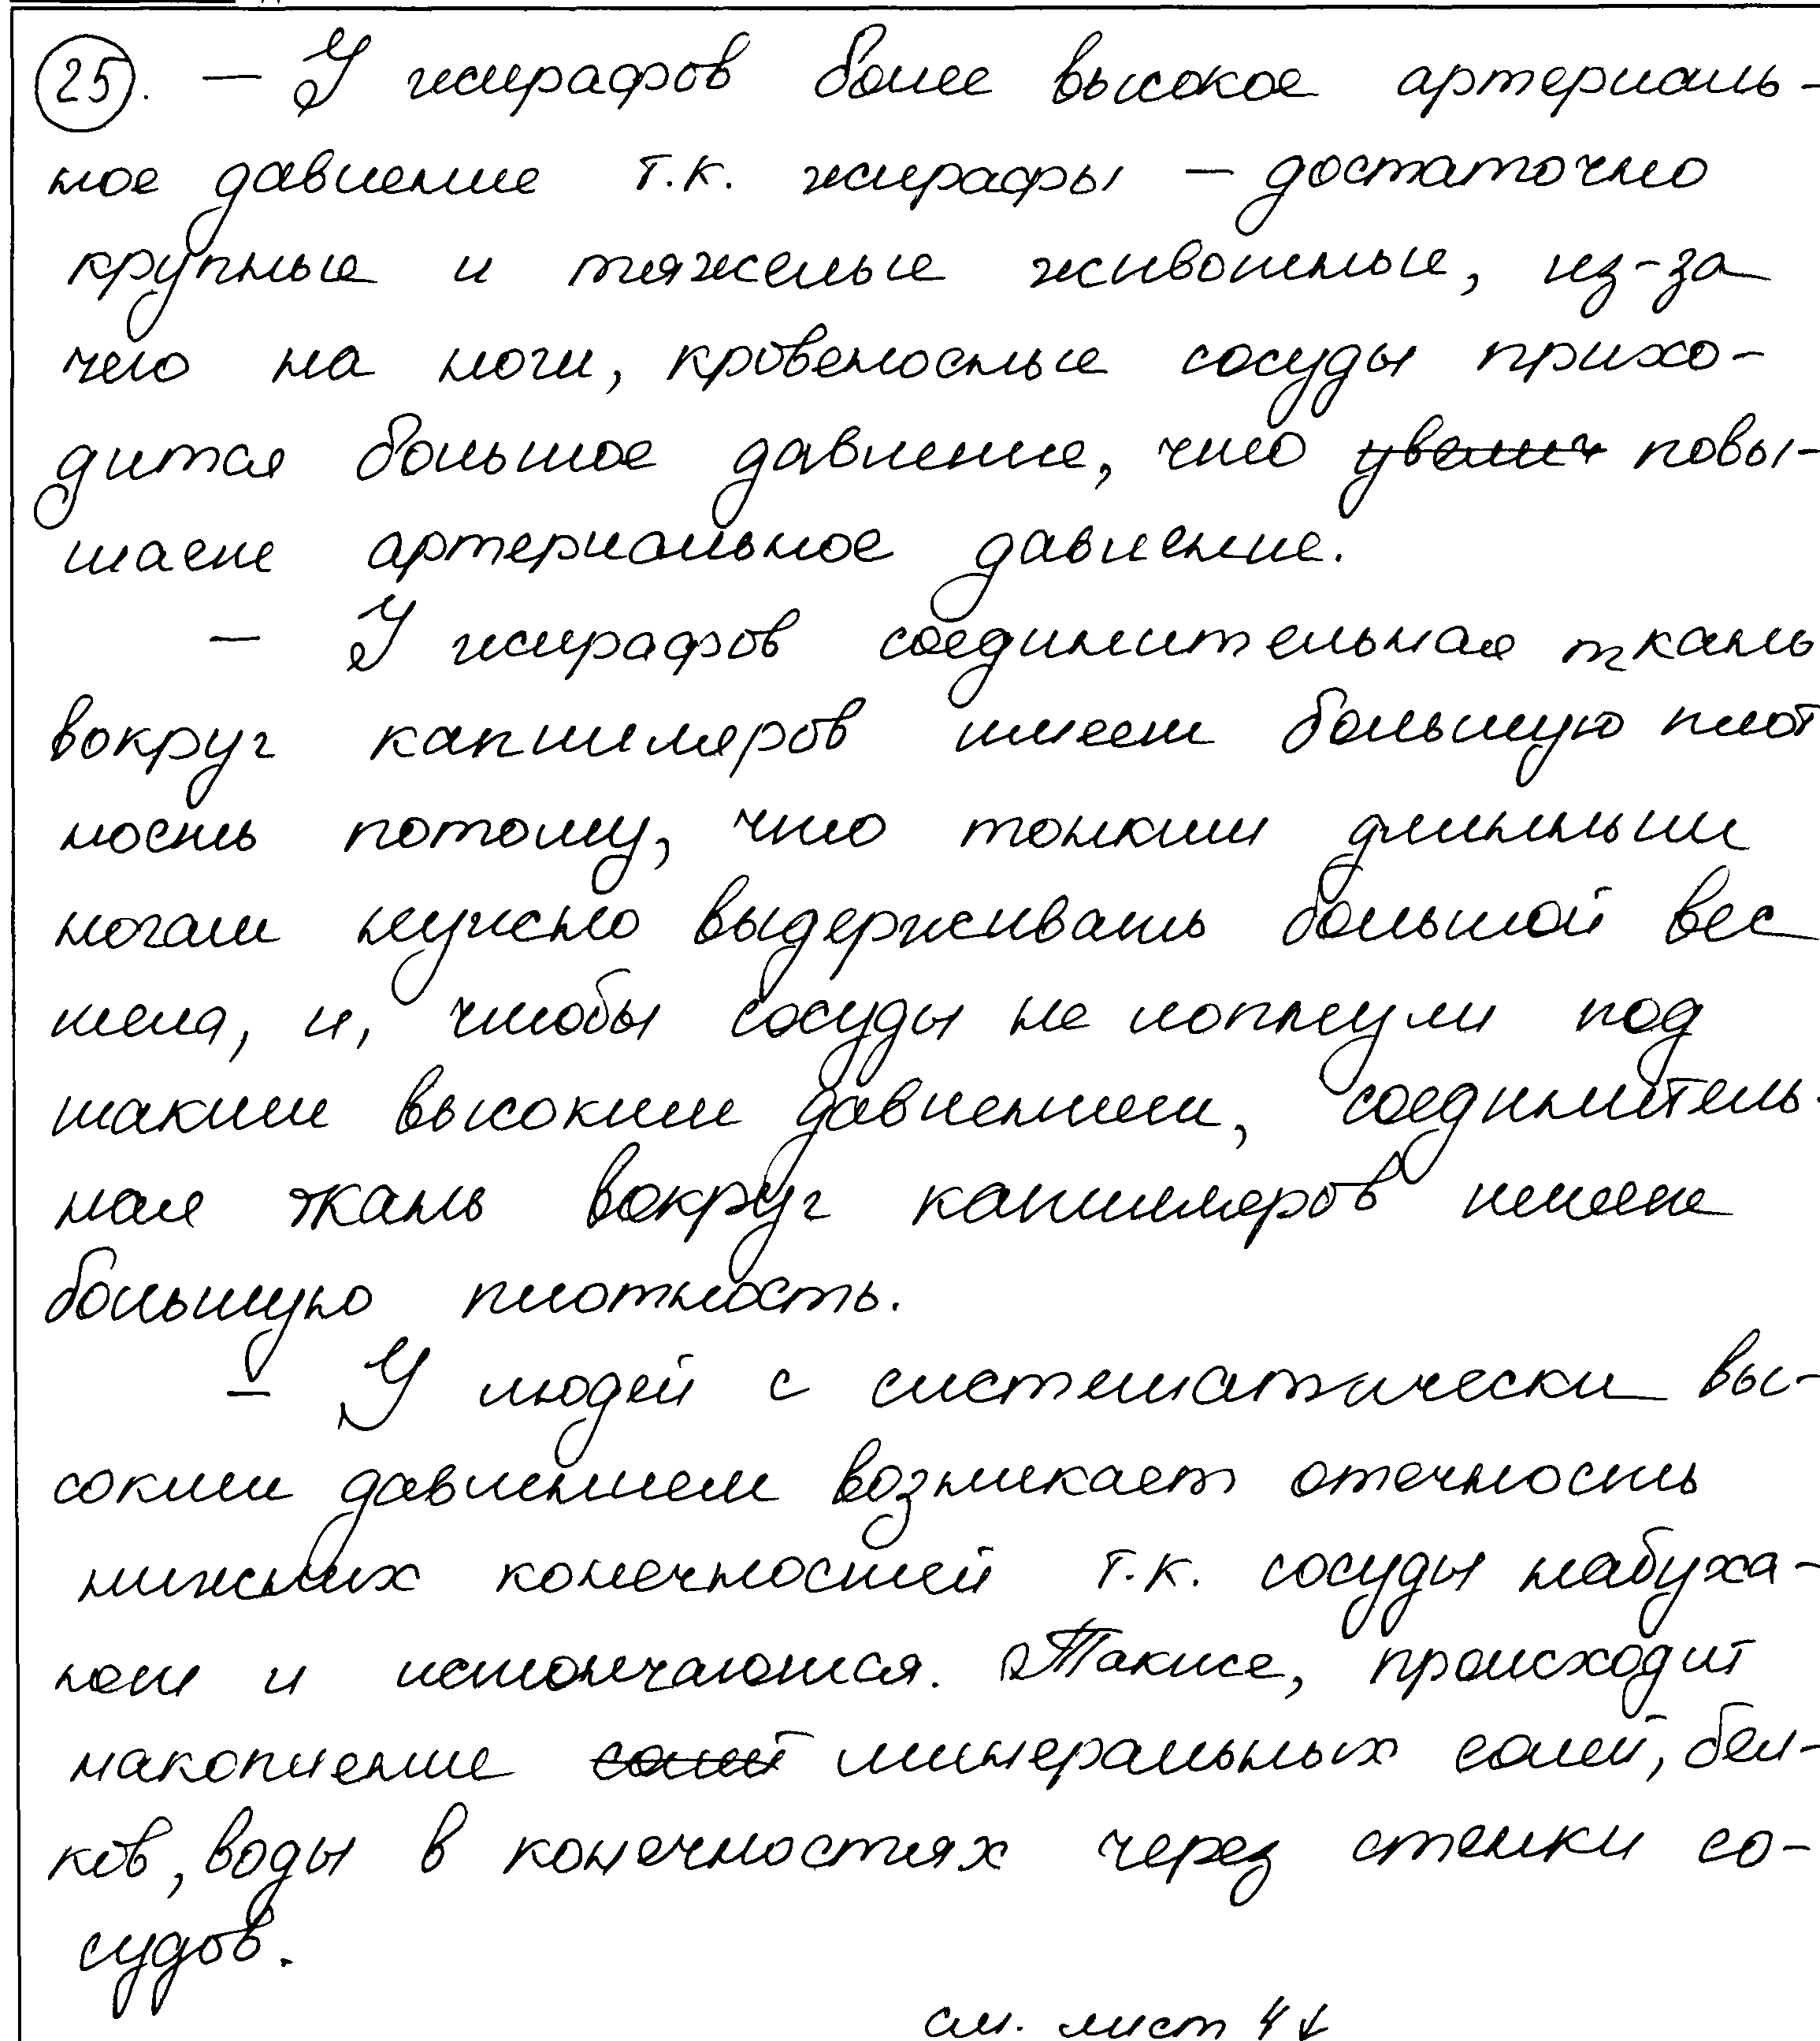 25. – У жирафов более высокое артериаль-
ное давление т.к. жирафы – достаточно
крупные и тяжелые животные, из-за
чего на ноги, кровеносные сосуды прихо-
дится большое давление, что увелич повы-
шает артериальное давление.
– У жирафов соединительная ткань
вокруг капилляров имеет большую плот
ность потому, что тонким длинным
ногам нужно выдерживать большой вес
тела, и, чтобы сосуды не лопнули под
таким высоким давлением, соединитель-
ная ткань вокруг капилляров имеет
большую плотность.
– У людей с систематически вы-
соким давлением возникает отечность
нижних конечностей т.к. сосуды набуха-
ют и истончаются. Также, происходит
накопление солей минеральных солей, бел-
ков, воды в конечностях через стенки со-
судов.
см. лист 4 ↓